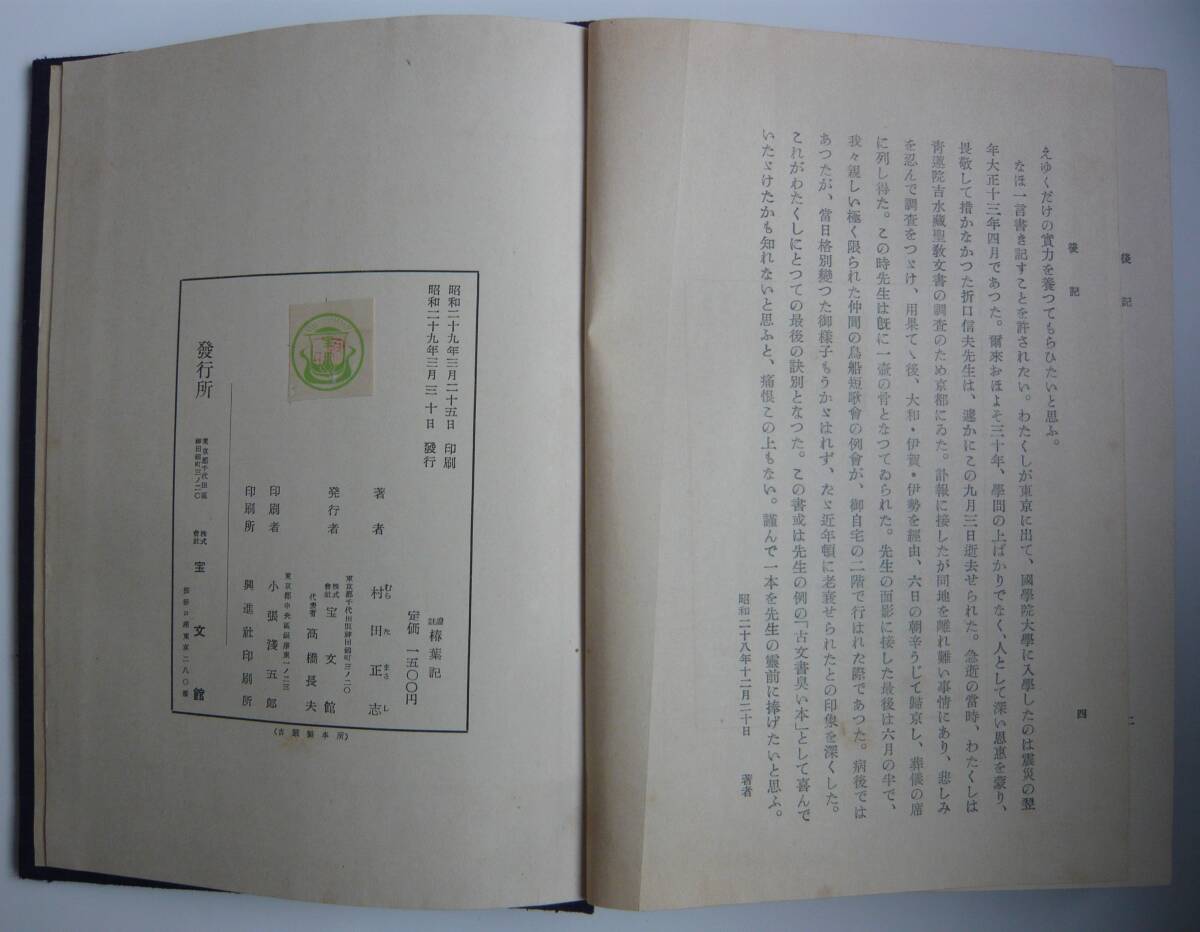 後記
二
後記
四
えゆくだけの實力を養つてもらひたいと思ふ。
なほ一言書き記すことを許されたい。わたくしが東京に出て、國學院大學に入學したのは震災の翌
年大正十三年四月であつた。爾來おほよそ三十年、學問の上ばかりでなく、人として深い恩惠を蒙り、
畏敬して措かなかつた折口信夫先生は、遽かにこの九月三日逝去せられた。急逝の當時、わたくしは
靑蓮院吉水藏聖敎文書の調査のため京都にゐた。訃報に接したが同地を離れ難い事情にあり、悲しみ
を忍んで調査をつゞけ、用果てゝ後、大和・伊賀・伊勢を經由、六日の朝辛うじて歸京し、葬儀の席
に列し得た。この時先生は旣に一壺の骨となつてゐられた。先生の面影に接した最後は六月の半で、
我々親しい極く限られた仲間の鳥船短歌會の例會が、御自宅の二階で行はれた際であつた。病後では
あつたが、當日格別變つた御樣子もうかゞはれず、たゞ近年頓に老衰せられたとの印象を深くした。
これがわたくしにとつての最後の訣別となつた。この書或は先生の例の「古文書臭い本」として喜んで
いたゞけたかも知れないと思ふと、痛恨この上もない。謹んで一本を先生の靈前に捧げたいと思ふ。
昭和二十八年十二月二十日　著者
昭和二十九年三月二十五日 印刷
昭和二十九年三月三十日 發行
證註 椿葉記
定価 一五〇〇円
著者 村田正志
むらたまさし
東京都千代田區神田錦町三ノ二〇
発行者 株式會社 宝文館
代表者 高橋長夫
東京都中央區銀座東一ノ二三
印刷者 小張淺五郎
印刷所 興進社印刷所
發行所
東京都千代田區
神田錦町三ノ二〇
株式會社 宝文館
振替口座東京二八〇番